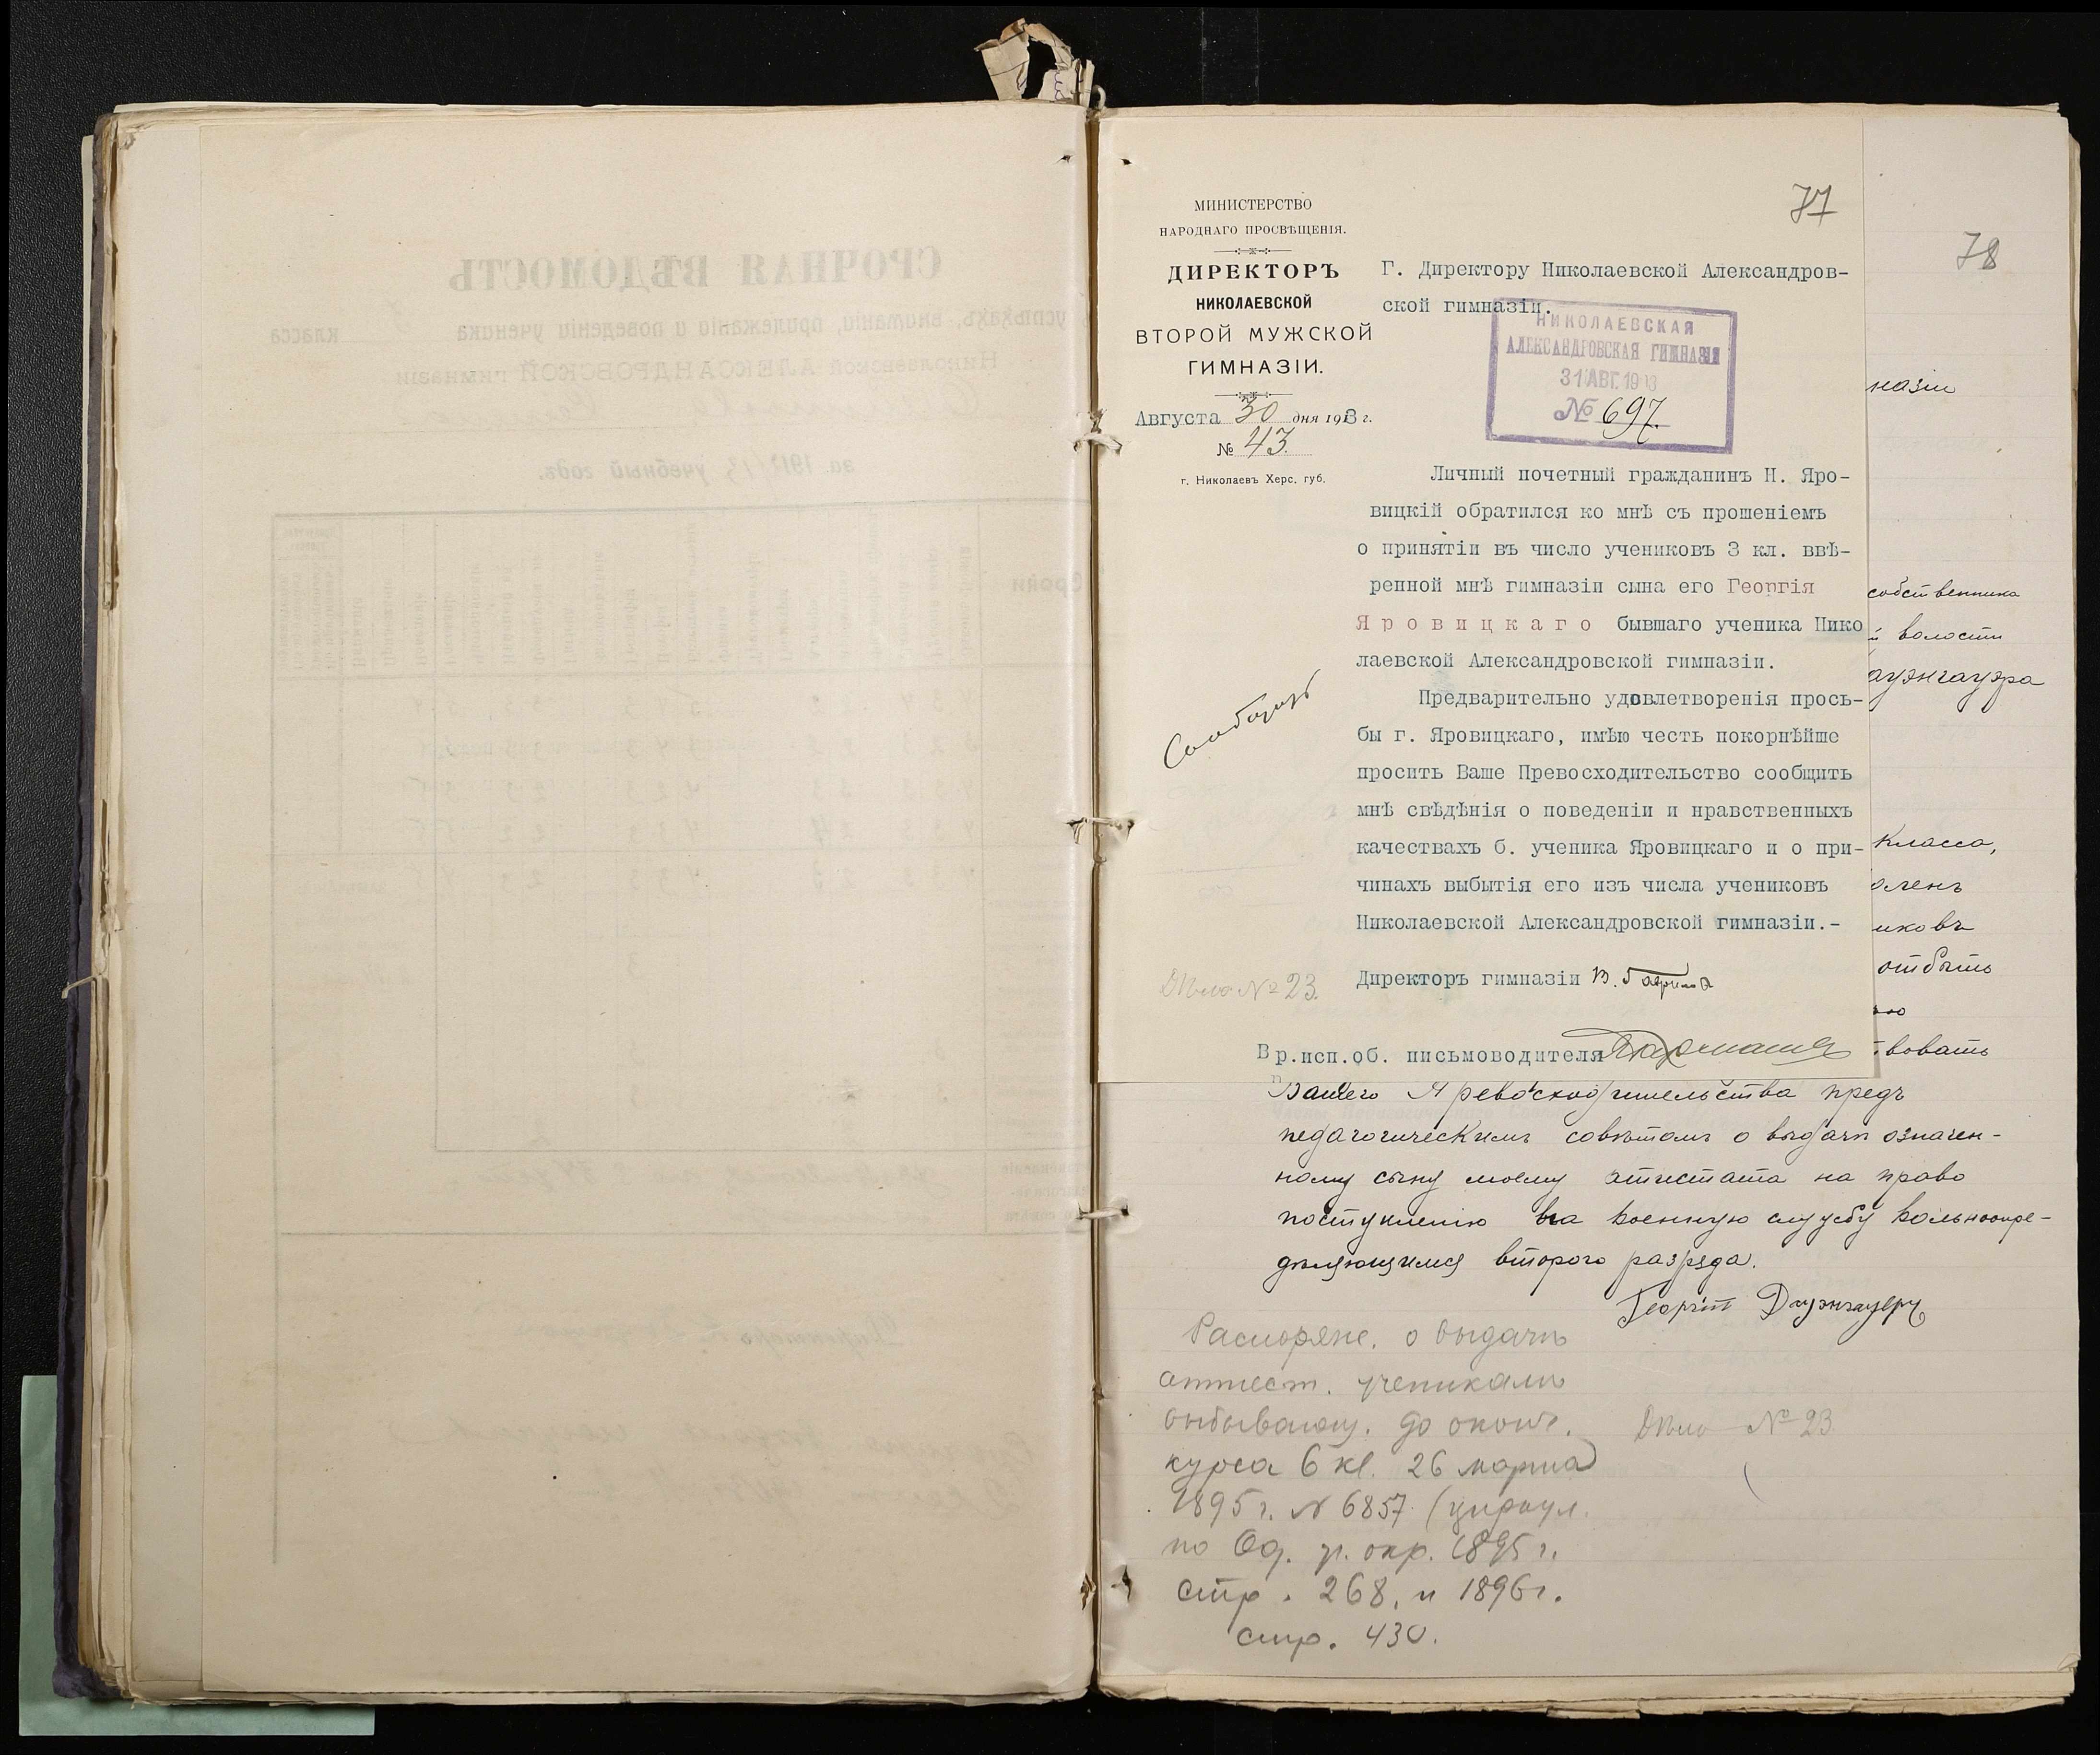 77
МИНИСТЕРСТВО
НАРОДНАГО ПРОСВѢЩЕНІЯ.
ДИРЕКТОРЪ
НИКОЛАЕВСКОЙ
ВТОРОЙ МУЖСКОЙ
ГИМНАЗІИ.
Августа 30 дня 1913 г.
№ 43.
г. Николаевъ Херс. губ.
Г. Директору Николаевской Александров-
ской гимназіи.
НИКОЛАЕВСКАЯ
АЛЕКСАНДРОВСКАЯ ГИМНАЗІЯ
31 АВГ. 1913
№ 697.
Личный почетный гражданинъ Н. Яро-
вицкій обратился ко мнѣ съ прошеніемъ
о принятіи въ число учениковъ 3 кл. ввѣ-
ренной мнѣ гимназіи сына его Георгія
Яровицкаго бывшаго ученика Нико
лаевской Александровской гимназіи.
Предварительно удовлетворенія прось-
бы г. Яровицкаго, имѣю честь покорнѣйше
просить Ваше Превосходительство сообщить
мнѣ свѣдѣнія о поведеніи и нравственныхъ
качествахъ б. ученика Яровицкаго и о при-
чинахъ выбытія его изъ числа учениковъ
Николаевской Александровской гимназіи.-
Директоръ гимназіи
Дѣло № 23.
Вр.исп.об. письмоводителя
78
назіи
собственника
й волости
ауэнгауэра
класса,
оленъ
иковъ
отбыть
ью
твовать
Вашего Превосходительства предъ
педагогическимъ совѣтомъ о выдачи означен-
ному сыну моему атистата на право
поступленію на военную службу вольноопре-
дѣляющимся второго разряда.
Георгій Дауэнгауеръ
Распоряж. о выдачѣ
аттест. ученикамъ
выбывающ. до оконч.
курса 6 кл. 26 марта
1895 г. N 6857 (циркул.
по Од. у. окр. 1895 г.
стр. 268, и 1896 г.
стр. 430.
Дѣло № 23
СРОЧНАЯ ВѢДОМОСТЬ
успѣхахъ, вниманіи, прилежаніи и поведеніи ученика
класса
Николаевской АЛЕКСАНДРОВСКОЙ гимназіи
за 1912/13 учебный годъ.